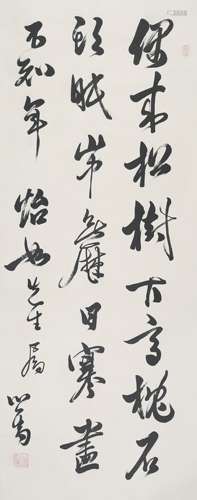 偶來松樹下高枕石
頭眠山中無曆日寒盡
不知年 先生屬 心畬